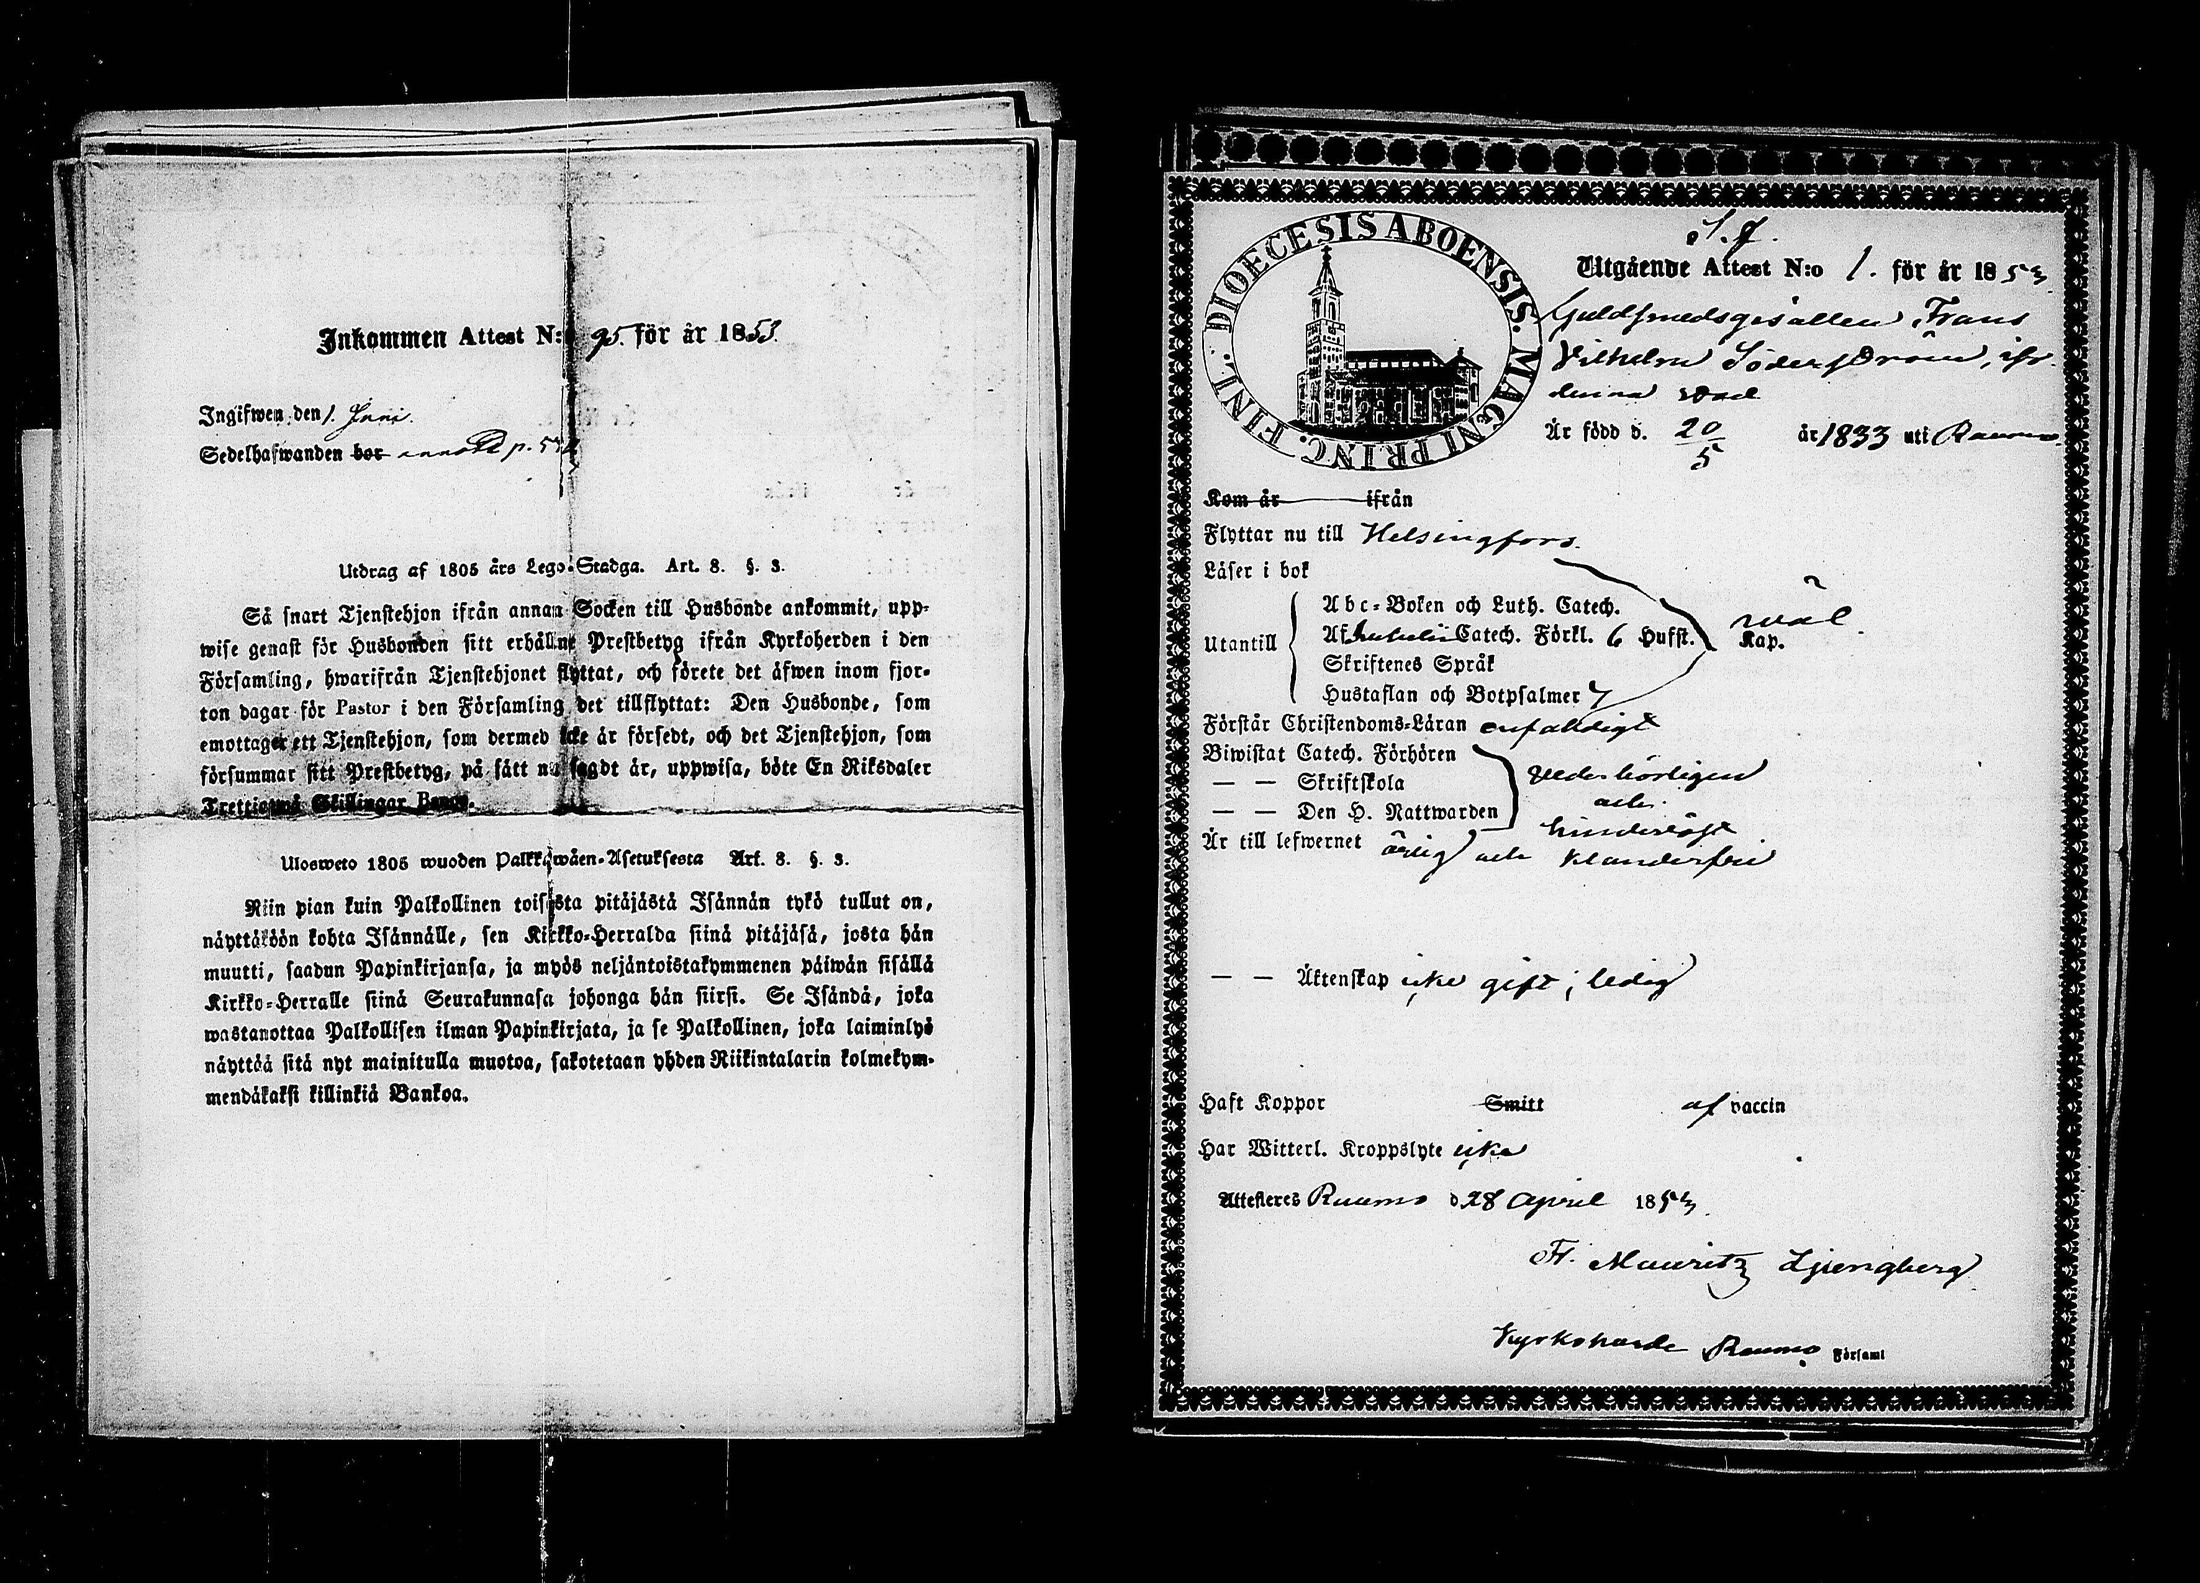 Inkommen Attest N:o 95. för år 1853.
Ingifwen den 1. Juni.
Sedelhafwanden bor annot p.
Utdrag af 1805 års Lego-Stadga. Art. 8. §. 3.
Så snart Tjenstehjon ifrån annan Socken till Husbonde ankommit, upp-
wise genast för Husbonden sitt erhållne Prestbetyg ifrån Kyrkoherden i den
Församling, hwarifrån Tjenstehjonet flyttat, och förete det äfwen inom fjor-
ton dagar för Pastor i den Församling det tillflyttat: Den Husbonde, som
emottager ett Tjenstehjon, som dermed icke är försedt, och det Tjenstehjon, som
försummar sitt Prestbetyg, på sätt nu sagdt är, uppwisa, böte En Riksdaler
Trettiotwå Skillingar Banco.
Ulosweto 1805 wuoden Palkkawäen-Asetuksesta Art. 8. §. 3.
Niin pian kuin Palkollinen toisesta pitäjästä Isännän tykö tullut on,
näyttäköön kohta Isännälle, sen Kirkko-Herralda siinä pitäjäsä, josta hän
muutti, saadun Papinkirjansa, ja myös neljäntoistakymmenen päiwän sisällä
Kirkko-Herralle siinä Seurakunnasa johonga hän siirsi. Se Isändä, joka
wastanottaa Palkollisen ilman Papinkirjata, ja se Palkollinen, joka laiminlyö
näyttää sitä nyt mainitulla muotoa, sakotetaan yhden Riikintalarin kolmekym-
mendäkaksi killinkiä Bankoa.
DIOECESIS ABOENSIS. MAGNI PRINC. FINL.
S. J.
Utgående Attest N:o 1. för år 1853
Guldsmedsgesällen Frans
Vilhelm Söderström, ifr.
denna stad
Är född d. 20/5 år 1833 uti Raumo
Kom år ifrån
Flyttar nu till Helsingfors.
Läser i bok
Utantill
Abc-Boken och Luth. Catech.
Af Catech. Förkl. 6 Hufst. Kap.
wäl.
Skriftenes Språk
Hustaflan och Botpsalmer 7
Förstår Christendoms-Läran enfaldigt
Biwistat Catech. Förhören
— — Skriftskola
— — Den H. Nattwarden
vederbörligen
och
Är till lefwernet ärlig och klanderfri
hinderlöst
— — Äktenskap icke gift; ledig
Haft Koppor Smitt af vaccin
Har Witterl. Kroppslyte icke
Attesteres Raumo d. 28 April 1853.
Fr. Mauritz Ljungberg
Kyrkoherde Raumo Församl